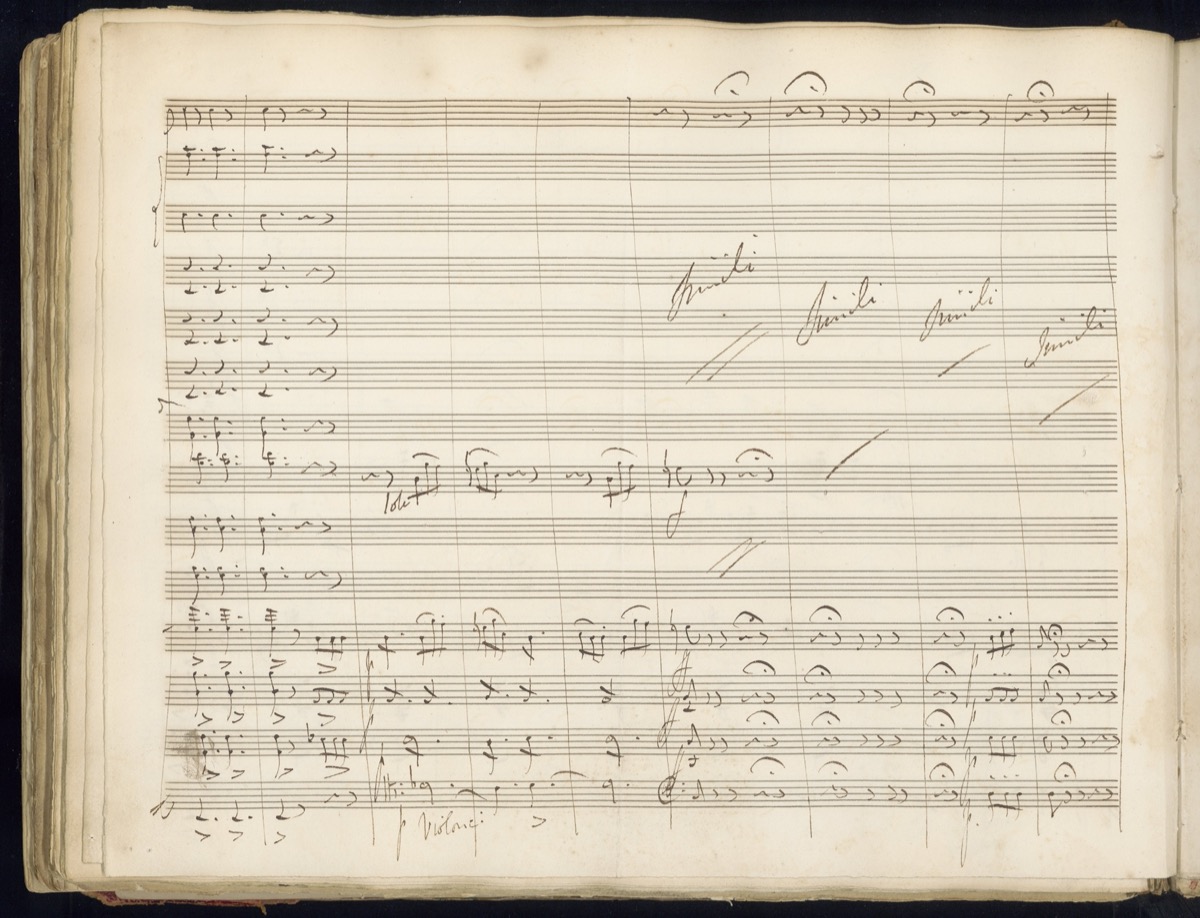 Simili
Simili
Simili
Simili
Solo
f
Violonc: